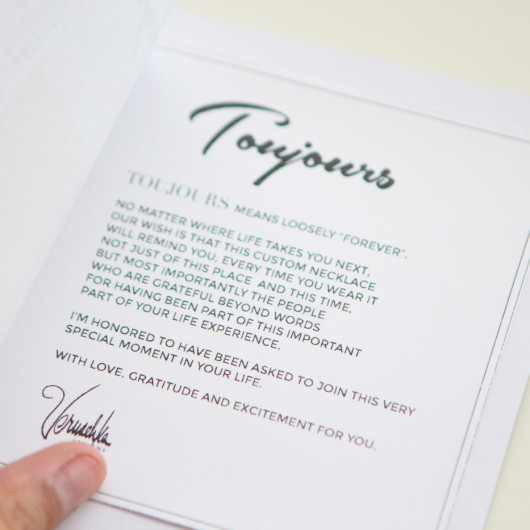 Toujours
TOUJOURS MEANS LOOSELY "FOREVER".
NO MATTER WHERE LIFE TAKES YOU NEXT,
OUR WISH IS THAT THIS CUSTOM NECKLACE
WILL REMIND YOU, EVERY TIME YOU WEAR IT
NOT JUST OF THIS PLACE AND THIS TIME,
BUT MOST IMPORTANTLY THE PEOPLE
WHO ARE GRATEFUL BEYOND WORDS
FOR HAVING BEEN PART OF THIS IMPORTANT
PART OF YOUR LIFE EXPERIENCE.
I'M HONORED TO HAVE BEEN ASKED TO JOIN THIS VERY
SPECIAL MOMENT IN YOUR LIFE.
WITH LOVE, GRATITUDE AND EXCITEMENT FOR YOU,
Veruschka